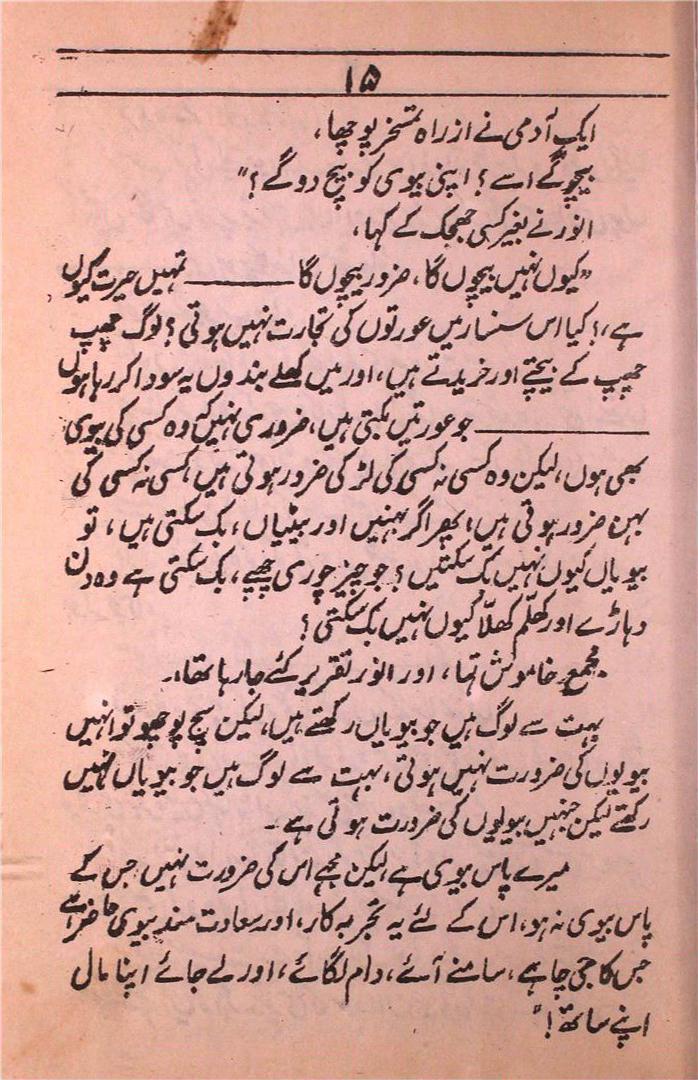 ۱۵
ایک آدمی نے ازراہ تمسخر پوچھا،
بیچو گے اسے؟ اپنی بیوی کو بیچ دو گے؟"
انور نے بغیر کسی جھجک کے کہا،
"کیوں نہیں بیچوں گا، ضرور بیچوں گا ——— تمہیں حیرت کیوں
ہے،؟ کیا اس سنسار میں عورتوں کی تجارت نہیں ہوتی؟ لوگ چھپ
چھپ کے بیچتے اور خریدتے ہیں، اور میں کھلے بندوں یہ سودا کر رہا ہوں
——— جو عورتیں بکتی ہیں، ضروری نہیں کہ وہ کسی کی بیوی
بھی ہوں، لیکن وہ کسی نہ کسی کی لڑکی ضرور ہوتی ہیں، کسی نہ کسی کی
بہن ضرور ہوتی ہیں، پھر اگر بہنیں اور بیٹیاں، بک سکتی ہیں، تو
بیویاں کیوں نہیں بک سکتیں؟ جو چیز چوری چھپے، بک سکتی ہے وہ دن
دہاڑے اور کھلّم کھلّا کیوں نہیں بک سکتی؟
مجمع خاموش تھا، اور انور تقریر کئے جا رہا تھا۔
بہت سے لوگ ہیں جو بیویاں رکھتے ہیں، لیکن سچ پوچھو تو انہیں
بیویوں کی ضرورت نہیں ہوتی، بہت سے لوگ ہیں جو بیویاں نہیں
رکھتے لیکن جنہیں بیویوں کی ضرورت ہوتی ہے۔
میرے پاس بیوی ہے لیکن مجھے اس کی ضرورت نہیں جس کے
پاس بیوی نہ ہو، اس کے لئے یہ تجربہ کار، اور سعادت مند بیوی حاضر ہے
جس کا جی چاہے، سامنے آئے، دام لگائے، اور لے جائے اپنا مال
اپنے ساتھ!"